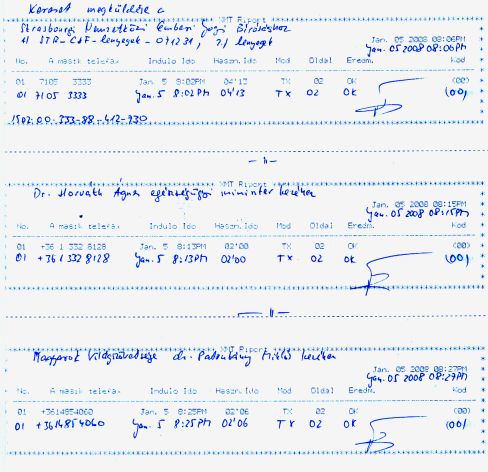 Kereset megküldése a
XMT Riport
Strasbourgi Nemzetközi Emberi Jogi Bírósághoz
Jan. 05 2008 08:06PM
Jan. 05 2008 08:06PM
No. A masik telefax Indulo Ido Haszn.Ido Mod Oldal Eredm. Kod
01 7105 3333 Jan. 5 8:02PM 04'13 TX 02 OK (00)
01 7105 3333 Jan. 5 8:02PM 04'13 TX 02 OK (00)
1502.00-333-88-412-930
- 11 -
XMT Riport
Dr. Horváth Ágnes egészségügyi miniszter kezéhez
Jan. 05 2008 08:15PM
Jan. 05 2008 08:15PM
No. A masik telefax Indulo Ido Haszn.Ido Mod Oldal Eredm. Kod
01 +36 1 332 8128 Jan. 5 8:13PM 02'00 TX 02 OK (00)
01 +36 1 332 8128 Jan. 5 8:13PM 02'00 TX 02 OK (00)
- 11 -
XMT Riport
Magyarok Világszövetsége dr. Patrubány Miklós kezéhez
Jan. 05 2008 08:27PM
Jan. 05 2008 08:27PM
No. A masik telefax Indulo Ido Haszn.Ido Mod Oldal Eredm. Kod
01 +3614854060 Jan. 5 8:25PM 02'06 TX 02 OK (00)
01 +3614854060 Jan. 5 8:25PM 02'06 TX 02 OK (00)